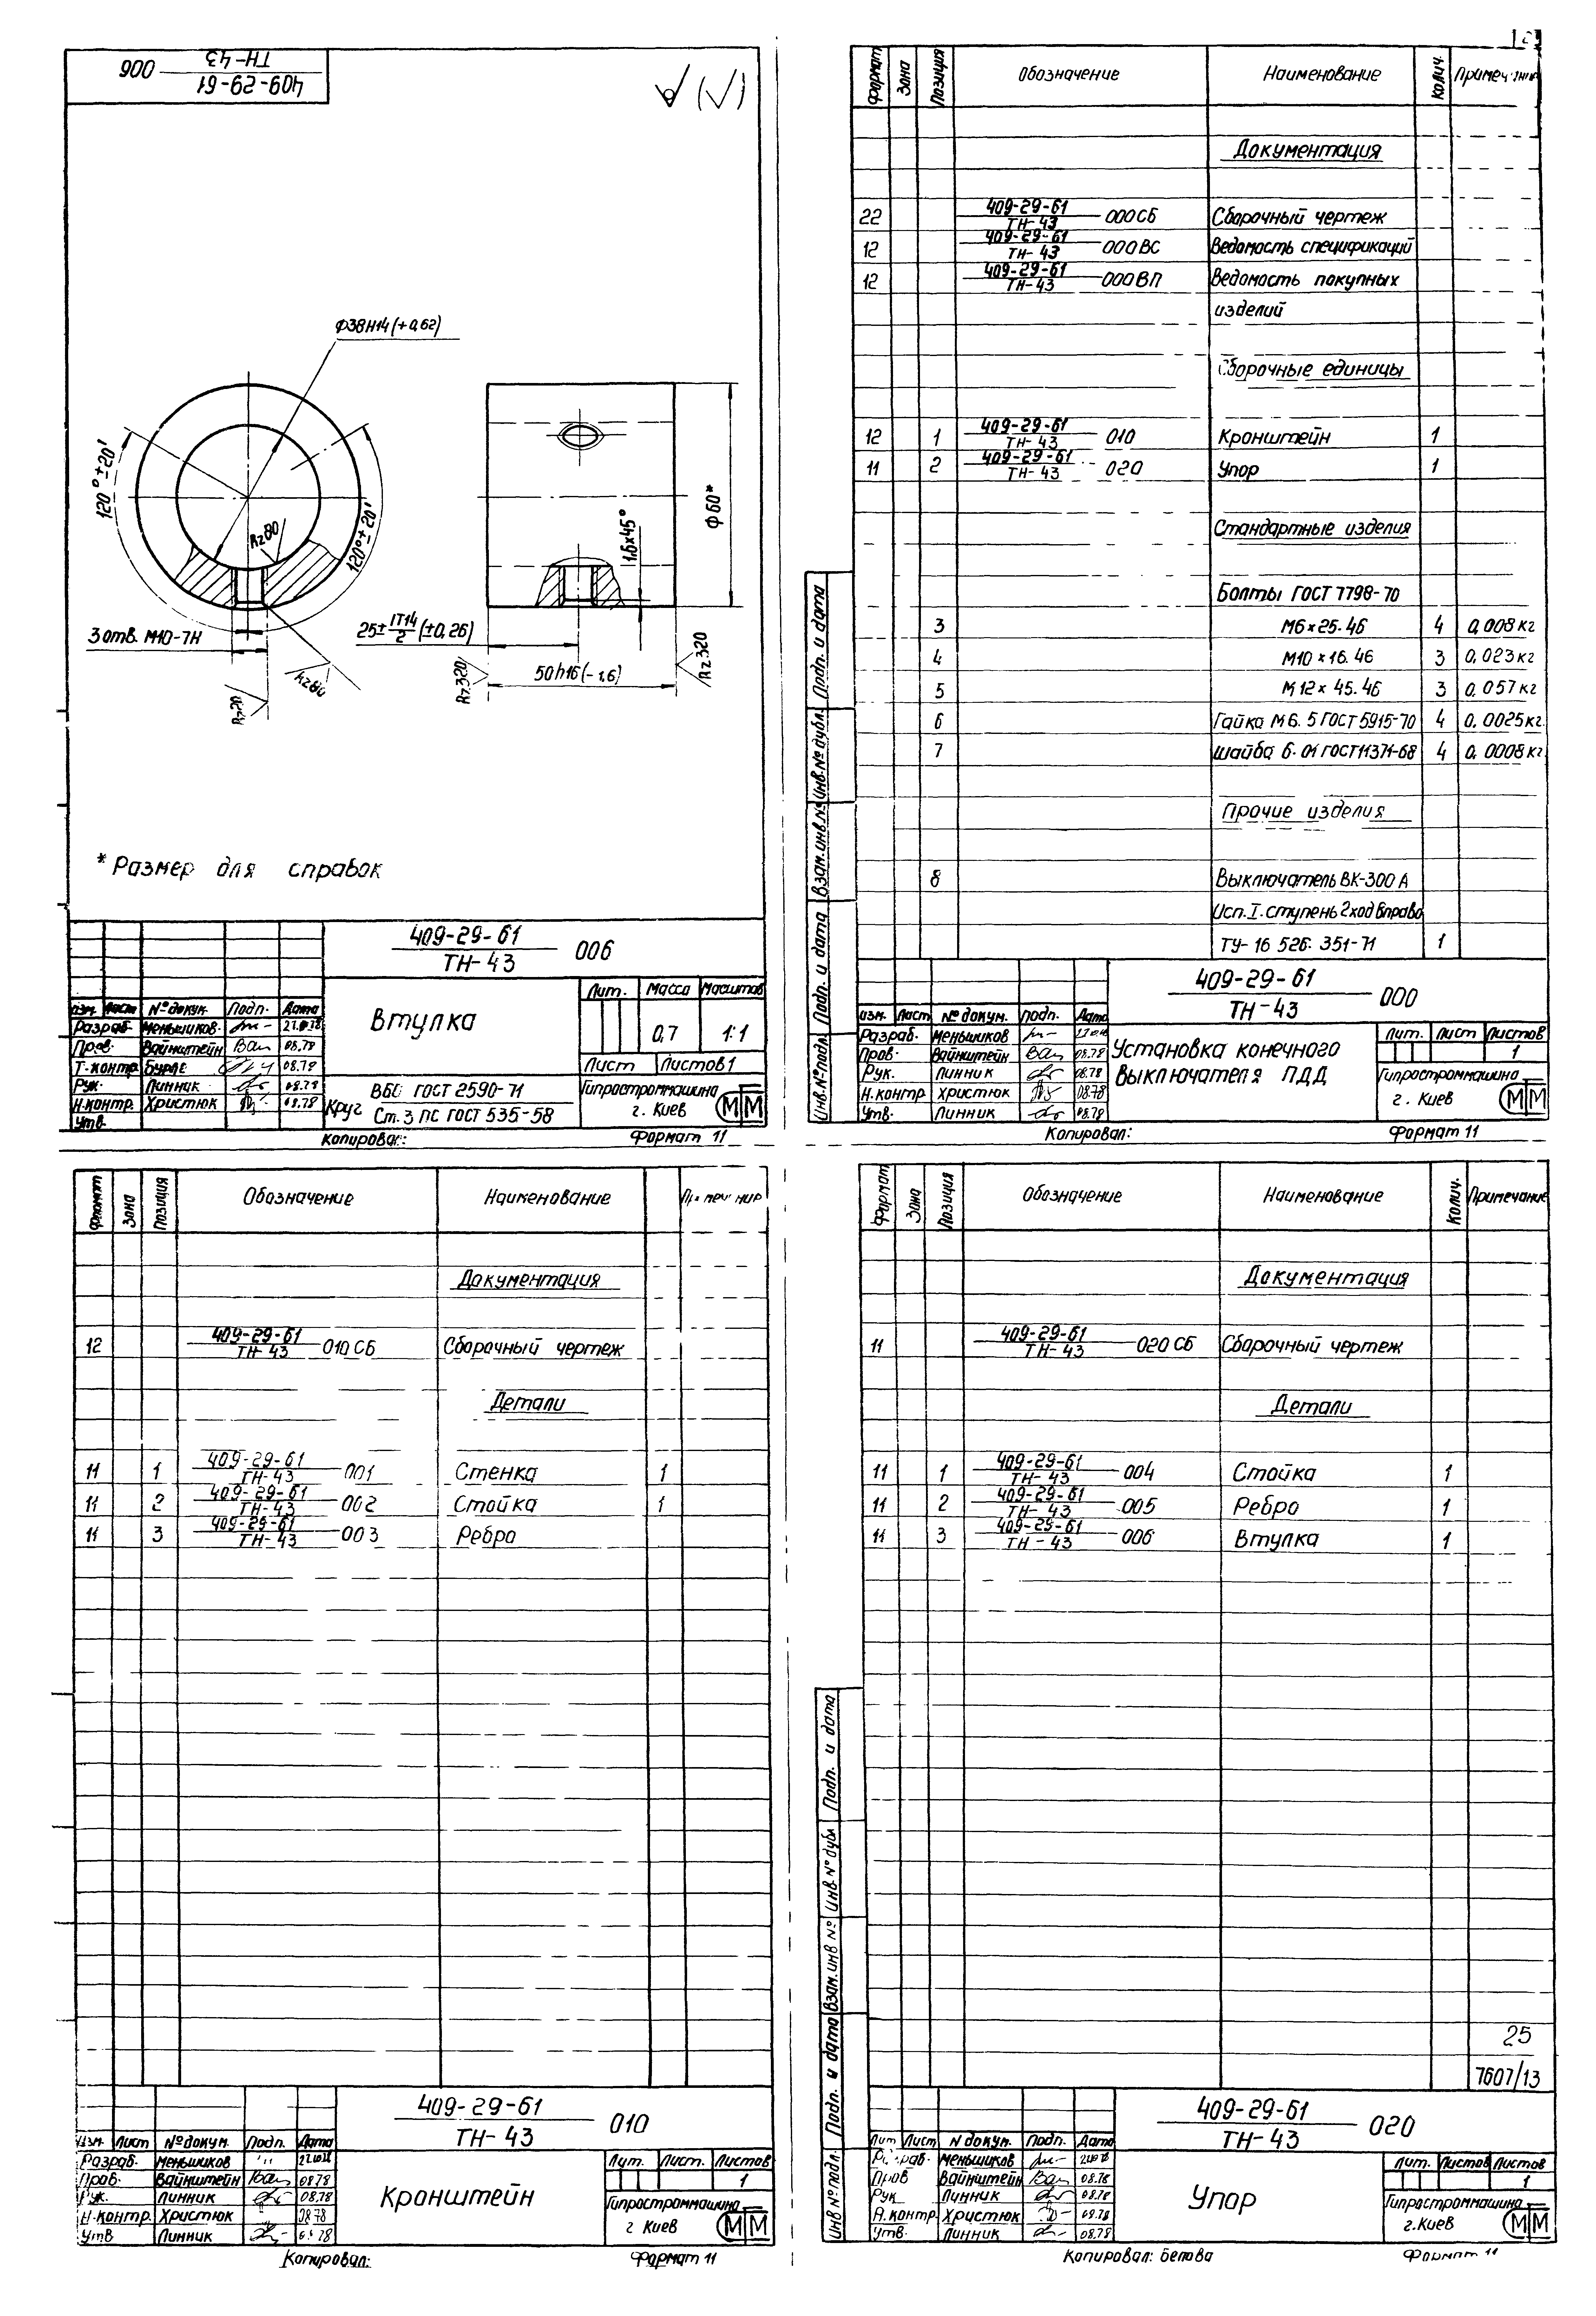 409-29-61
ТН-43
006
Ф38Н14(+0,62)
120°±20'
120°±20'
Rz80
3 отв. М10-7Н
Rz80
Rz20
Ф60*
1,6х45°
25± IT14/2 (±0,26)
50h16(-1,6)
Rz320
Rz320
* Размер для справок
409-29-61
ТН-43
006
Изм. Лист № докум. Подп. Дата
Разраб. Меньшиков
Пров. Вайнштейн 08.78
Т.контр. 08.78
Рук. Линник 08.78
Н.контр. Христюк 08.78
Утв.
Втулка
Лит. Масса Масштаб
0,7 1:1
Лист Листов 1
Круг
В60 ГОСТ 2590-71
Ст.3 ПС ГОСТ 535-58
Гипростроммашина
г. Киев
ММ
Копировал:
Формат 11
Формат Зона Позиция Обозначение Наименование Колич. Примечание
Документация
22 409-29-61/ТН-43 000СБ Сборочный чертеж
12 409-29-61/ТН-43 000ВС Ведомость спецификаций
12 409-29-61/ТН-43 000ВП Ведомость покупных
изделий
Сборочные единицы
12 1 409-29-61/ТН-43 010 Кронштейн 1
11 2 409-29-61/ТН-43 020 Упор 1
Стандартные изделия
Болты ГОСТ 7798-70
3 М6×25.46 4 0,008кг
4 М10×16.46 3 0,023кг
5 М12×45.46 3 0,057кг
6 Гайка М6.5 ГОСТ5915-70 4 0,0025кг
7 Шайба 6.01 ГОСТ11371-68 4 0,0008кг
Прочие изделия
8 Выключатель ВК-300А
Исп. I. ступень 2 ход вправо
ТУ-16 526.351-71 1
Подп. и дата
Инв.№ дубл.
Взам.инв.№
Подп. и дата
Инв.№ подл.
409-29-61
ТН-43
000
Изм. Лист № докум. Подп. Дата
Разраб. Меньшиков
Пров. Вайнштейн 08.78
Рук. Линник 08.78
Н.контр Христюк 08.78
Утв. Линник 08.78
Установка конечного
выключателя ПДД
Лит. Лист Листов
1
Гипростроммашина
г. Киев
ММ
Копировал:
Формат 11
Формат Зона Позиция Обозначение Наименование Примечание
Документация
12 409-29-61/ТН-43 010 СБ Сборочный чертеж
Детали
11 1 409-29-61/ТН-43 001 Стенка 1
11 2 409-29-61/ТН-43 002 Стойка 1
11 3 409-29-61/ТН-43 003 Ребро
409-29-61
ТН-43
010
Изм. Лист № докум. Подп. Дата
Разраб. Меньшиков
Пров. Вайнштейн 08.78
Рук. Линник 08.78
Н.контр. Христюк 08.78
Утв Линник
Кронштейн
Лит. Лист. Листов
1
Гипростроммашина
г Киев
ММ
Копировал:
Формат 11
Формат Зона Позиция Обозначение Наименование Колич. Примечание
Документация
11 409-29-61/ТН-43 020 СБ Сборочный чертеж
Детали
11 1 409-29-61/ТН-43 004 Стойка 1
11 2 409-29-61/ТН-43 005 Ребро 1
11 3 409-29-61/ТН-43 006 Втулка 1
25
7607/13
Подп. и дата
Инв. № дубл
Взам. инв №
Подп. и дата
Инв № подл.
409-29-61
ТН-43
020
Лит Лист N докум. Подп. Дата
Разраб. Меньшиков
Пров Вайнштейн 08.78
Рук Линник 08.78
Н.контр. Христюк 08.78
Утв. Линник 08.78
Упор
Лит. Листов Листов
1
Гипростроммашина
г.Киев
ММ
Копировал: Белова
Формат 11